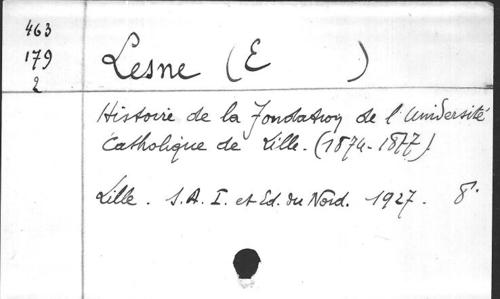 463
179
2
Lesne (E )
Histoire de la Fondation de l'Université
Catholique de Lille. (1874-1877)
Lille. S.A.I. et Ed. du Nord. 1927. 8°.